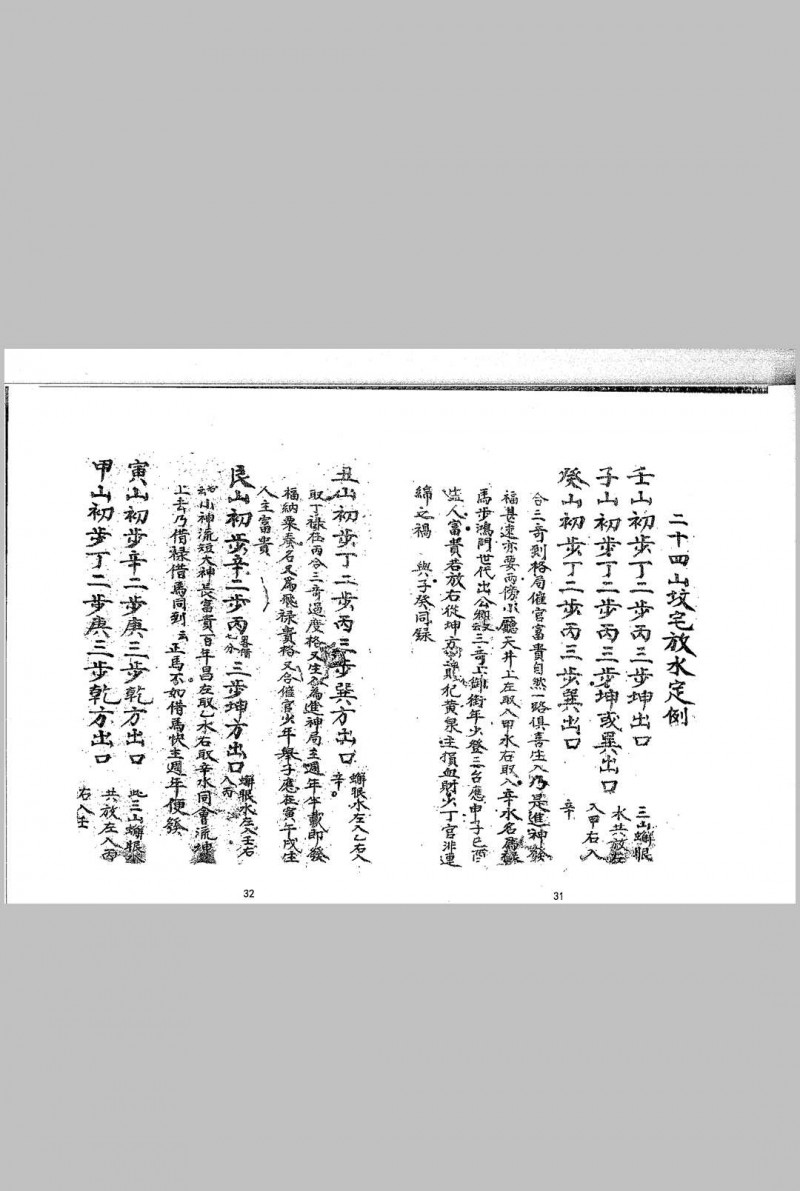 二十四山坟宅放水定例
壬山初步丁二步丙三步坤出口
子山初步丁二步丙三步坤或巽出口
癸山初步丁二步丙三步巽出口
三山蠏眼
水共放左
入甲右入
辛
合三奇到格局催官富貴自然一路俱喜生入乃是進神發
福甚速亦要兩傍小廳天井上左取入甲水右取入辛水名為祿
馬步鴻門世代出公卿三奇上御街年少登三台應申子巳酉
益人富貴若放右從坤方則犯黃泉主損血財少丁官非連
綿之禍 與子癸同錄
31
丑山初步丁二步丙三步巽方出口
蠏眼水左入乙右入
辛
取丁祿在丙合三奇過度格又生入為進神局主週年半載即發
福納粟奏名又為飛祿貴格又合催官少年舉子應在寅午戌生
人主富貴
艮山初步辛二步丙七分三步坤方出口
蠏眼水左入壬右
入丙
小神流短大神長富貴百年昌左取乙水右取辛水同會流坤
上去乃借祿借馬同到云正馬不如借馬快主週年便發
寅山初步辛二步庚三步乾方出口
甲山初步丁二步庚三步乾方出口
此三山蠏眼水
共放左入丙
右入壬
32